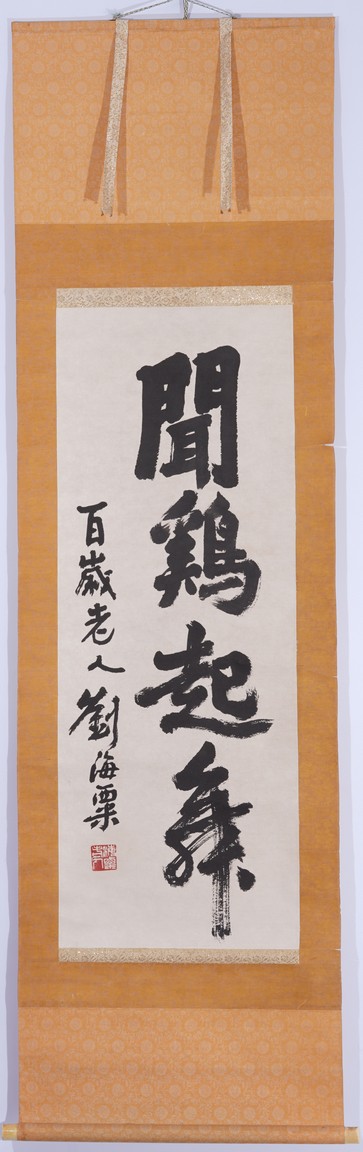 聞鶏起舞
百歲老人劉海粟